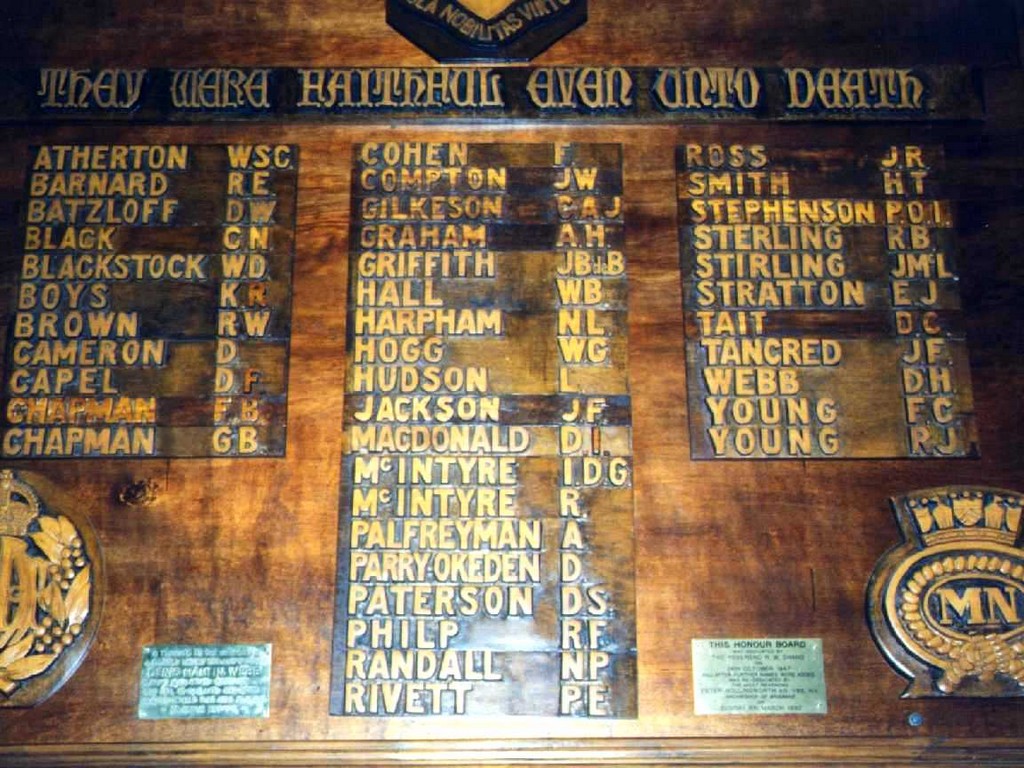 NOBILITAS
THEY WERE FAITHFUL EVEN UNTO DEATH
ATHERTON W.S.C.
BARNARD R E
BATZLOFF D W
BLACK C N
BLACKSTOCK W D
BOYS K R
BROWN R W
CAMERON D
CAPEL D F
CHAPMAN F B
CHAPMAN G B
COHEN F
COMPTON J W
GILKESON C A J
GRAHAM A H
GRIFFITH
HALL W B
HARPHAM N L
HOGG W G
HUDSON L
JACKSON J F
MACDONALD D I
Mc INTYRE I.D.G
Mc INTYRE R
PALFREYMAN A
PARRY-OKEDEN D
PATERSON D S
PHILP R F
RANDALL N P
RIVETT P E
ROSS J R
SMITH H T
STEPHENSON P.O.I.
STERLING R B
STIRLING
STRATTON E J
TAIT D C
TANCRED J F
WEBB D H
YOUNG F C
YOUNG R J
MN
THIS HONOUR BOARD